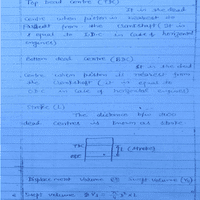 Top dead centre (TDC)
It is the dead
centre when piston is
from the Crankshaft (It is
equal to I.D.C in case of horizontal
engines)
Bottom dead centre (BDC)
It is the dead
centre when piston is nearest
from the Crankshaft (it is equal to
in case of horizontal engines)
Stroke (L)
The distance b/w
dead centres is known as stroke.
TDC
L (Stroke)
BDC
Displacement Volume or Swept volume (Vs)
Swept volume